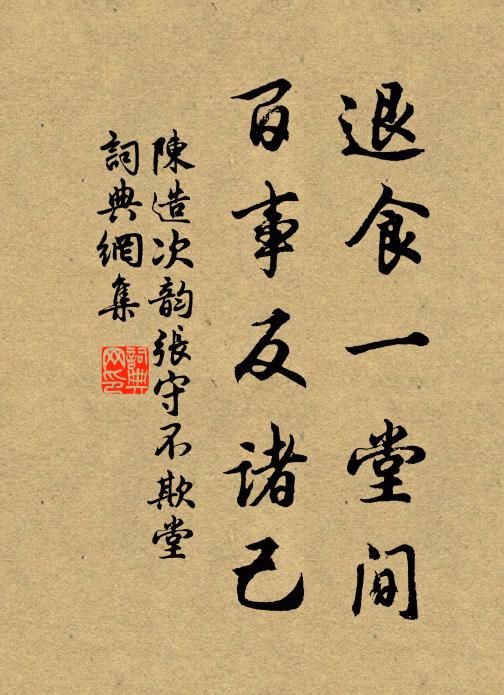 退食一堂间
百事反诸己
陳造次韵張守不欺堂
詞典網集
詞典網印